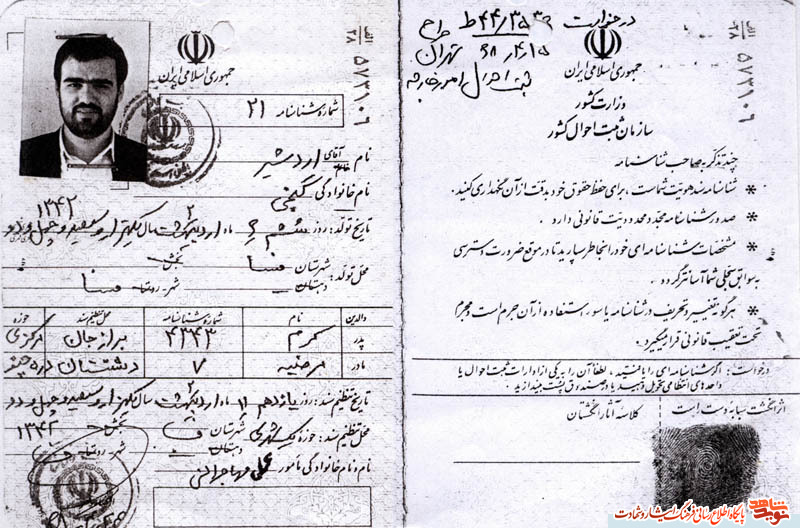 الف
۲۸
۵۷۳۱۰۹
جمهوری اسلامی ایران
شماره شناسنامه ۲۱
نام آقای اردشیر
خانم
نام خانوادگی گنجی
۱۳۴۲ ۲
تاریخ تولد: روز ششم ۶ ماه اردیبهشت سال یکهزار و سیصد و چهل و دو
محل تولد: شهرستان فسا بخش
دهستان شهر - روستا فسا
والدین نام شماره شناسنامه محل تنظیم سند حوزه
پدر کرم ۴۳۴۳ برازجان مرکزی
مادر مرضیه ۷ دشتستان
۲
تاریخ تنظیم سند: روز یازدهم ۱۱ ماه اردیبهشت سال یکهزار و سیصد و چهل و دو
محل تنظیم سند: حوزه یک شهری شهرستان فسا بخش ۱۳۴۲
دهستان شهر - روستا
نام و نام خانوادگی مأمور: علی مهاجرانی
در خواست
تهران ۶۸,۴,۱۵
ثبت احوال امور خارجه
الف
۲۸
۵۷۳۱۰۹
جمهوری اسلامی ایران
وزارت کشور
سازمان ثبت احوال کشور
چند تذکر به صاحب شناسنامه
* شناسنامه سند هویت شماست، برای حفظ حقوق خود بدقت از آن نگهداری کنید.
* صدور شناسنامه مجدد محدودیت قانونی دارد.
* مشخصات شناسنامه ای خود را بخاطر بسپارید تا در موقع ضرورت دسترسی
به سوابق سجلی شما آسانتر گردد.
* هرگونه تغییر و تحریف در شناسنامه یا سوء استفاده از آن جرم است و مجرم
تحت تعقیب قانونی قرار میگیرد.
درخواست: اگر شناسنامه ای را یافتید، لطفاً آن را به یکی از ادارات ثبت احوال یا
واحدهای انتظامی تحویل دهید یا در صندوق پست بیندازید.
اثر انگشت سبابه دست راست کلاسه آثار انگشتان
نوید شاهد
پایگاه اطلاع رسانی فرهنگ ایثار و شهادت